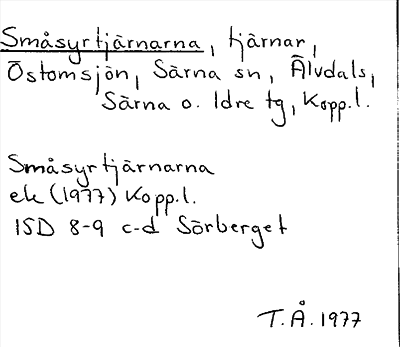 Småsyrtjärnarna, tjärnar,
Östomsjön, Särna sn, Älvdals,
Särna o. Idre tg, Kopp.l.
Småsyrtjärnarna
ek (1977) Kopp.l.
15D 8-9 c-d Sörberget
T.Å. 1977